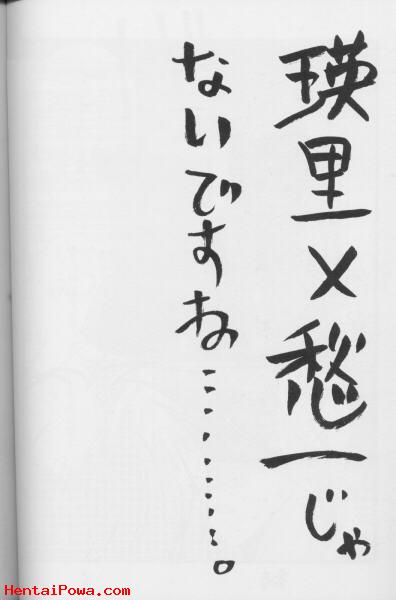 瑛里×愁一じゃ
ないですね…………。
HentaiPowa.com